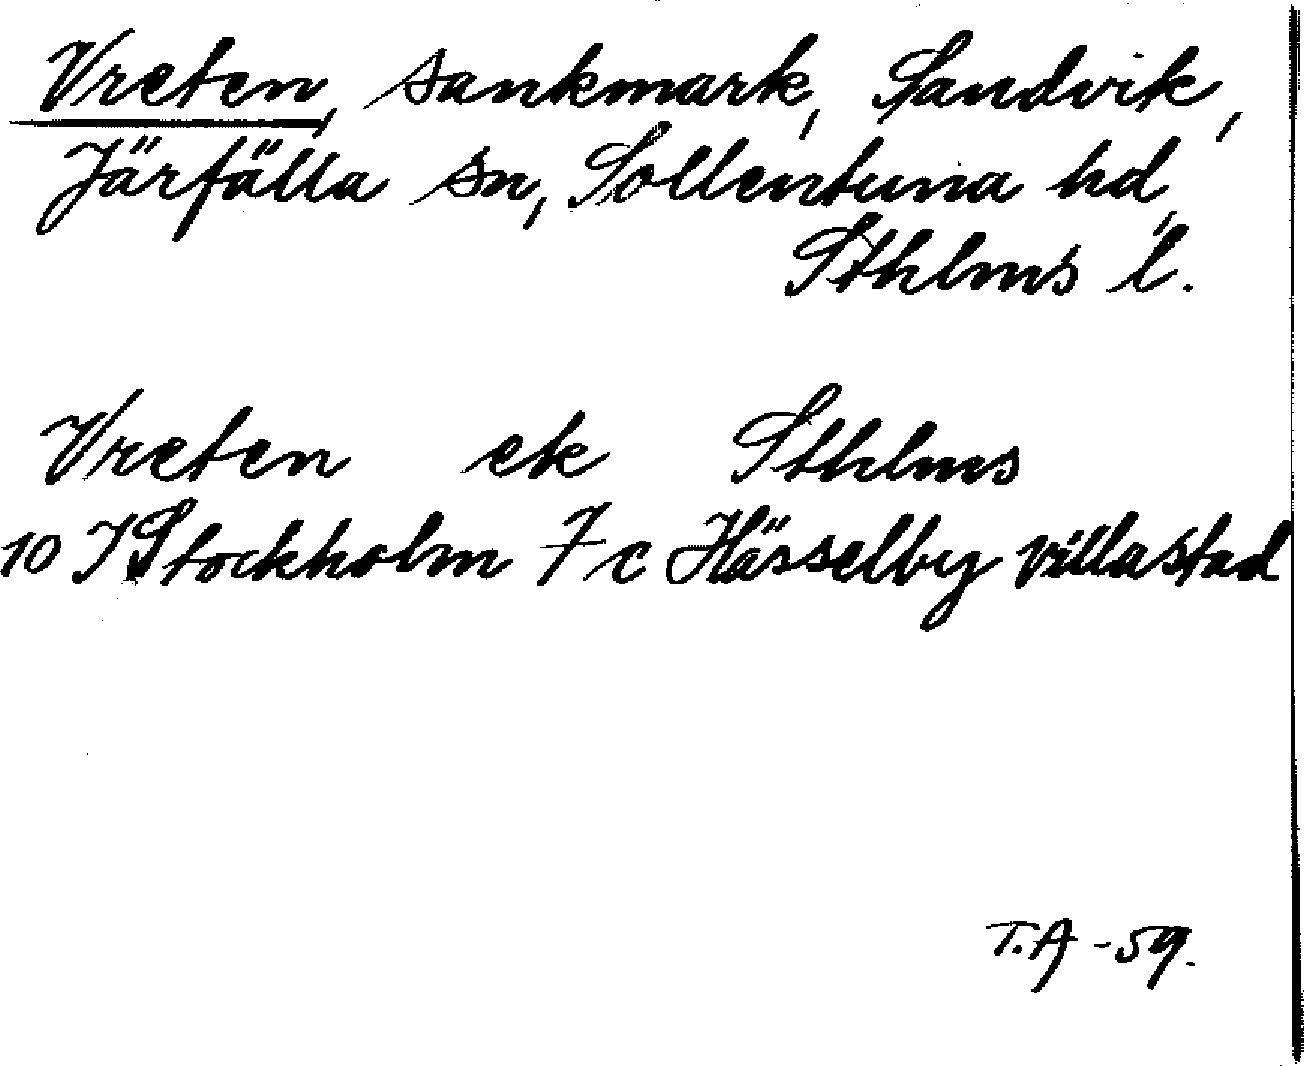 Vreten, sankmark, Sandvik,
Järfälla sn, Sollentuna hd,
Sthlms l.
Vreten ek Sthlms
10 I Stockholm 7 c Hässelby villastad
T.A -59.